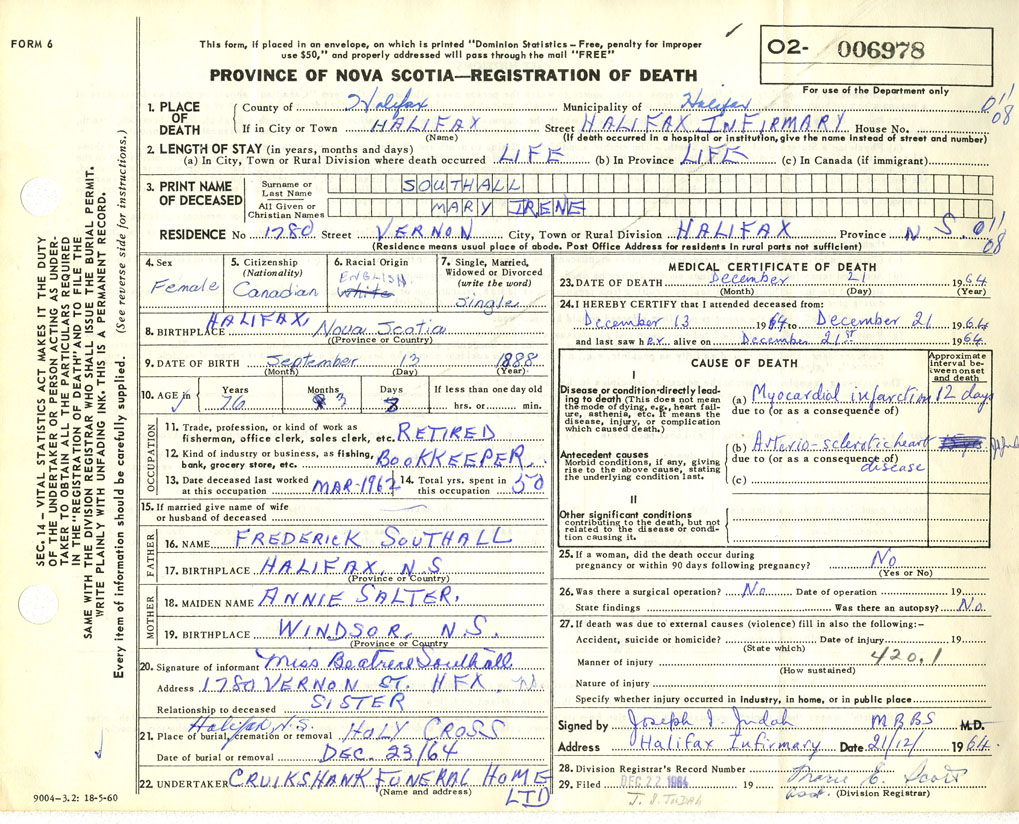 FORM 6
This form, if placed in an envelope, on which is printed "Dominion Statistics – Free, penalty for improper
use $50," and properly addressed will pass through the mail "FREE"
O2- 006978
PROVINCE OF NOVA SCOTIA—REGISTRATION OF DEATH
For use of the Department only
1. PLACE OF DEATH
County of Halifax Municipality of Halifax
If in City or Town HALIFAX Street HALIFAX INFIRMARY House No.
(Name) (If death occurred in a hospital or institution, give the name instead of street and number)
011
08
2. LENGTH OF STAY (in years, months and days)
(a) In City, Town or Rural Division where death occurred LIFE (b) In Province LIFE (c) In Canada (if immigrant)
3. PRINT NAME OF DECEASED
Surname or Last Name SOUTHALL
All Given or Christian Names MARY IRENE
RESIDENCE No 1780 Street VERNON City, Town or Rural Division HALIFAX Province N.S. 011
08
(Residence means usual place of abode. Post Office Address for residents in rural parts not sufficient)
4. Sex
Female
5. Citizenship
(Nationality)
Canadian
6. Racial Origin
ENGLISH
White
7. Single, Married,
Widowed or Divorced
(write the word)
Single
8. BIRTHPLACE HALIFAX, Nova Scotia
(Province or Country)
9. DATE OF BIRTH September 13 1888
(Month) (Day) (Year)
10. AGE in
Years Months Days If less than one day old
76 3 8 hrs. or min.
OCCUPATION
11. Trade, profession, or kind of work as
fisherman, office clerk, sales clerk, etc. RETIRED
12. Kind of industry or business, as fishing,
bank, grocery store, etc. BOOKKEEPER.
13. Date deceased last worked
at this occupation MAR-1962
14. Total yrs. spent in
this occupation 50
15. If married give name of wife
or husband of deceased
FATHER
16. NAME FREDERICK SOUTHALL
17. BIRTHPLACE HALIFAX, N.S
(Province or Country)
MOTHER
18. MAIDEN NAME ANNIE SALTER.
19. BIRTHPLACE WINDSOR, N.S.
(Province or Country
20. Signature of informant Miss Beatrice Southall
Address 1780 VERNON ST. HFX. N.S.
Relationship to deceased SISTER
Halifax, N.S.
21. Place of burial, cremation or removal HOLY CROSS
Date of burial or removal DEC. 23/64
22. UNDERTAKER CRUIKSHANK FUNERAL HOME
(Name and address) LTD
9004-3.2: 18-5-60
MEDICAL CERTIFICATE OF DEATH
23. DATE OF DEATH December 21 1964
(Month) (Day) (Year)
24. I HEREBY CERTIFY that I attended deceased from:
December 13 1964 to December 21 1964
and last saw her alive on December 21st 1964.
CAUSE OF DEATH
Approximate
interval be-
tween onset
and death
I
Disease or condition directly lead-
ing to death (This does not mean
the mode of dying, e.g., heart fail-
ure, asthenia, etc. It means the
disease, injury, or complication
which caused death.)
(a) Myocardial infarction 12 days
due to (or as a consequence of)
Antecedent causes
Morbid conditions, if any, giving
rise to the above cause, stating
the underlying condition last.
(b) Arterio-sclerotic heart
due to (or as a consequence of)
disease
(c)
II
Other significant conditions
contributing to the death, but not
related to the disease or condi-
tion causing it.
25. If a woman, did the death occur during
pregnancy or within 90 days following pregnancy? No
(Yes or No)
26. Was there a surgical operation? No Date of operation 19
State findings Was there an autopsy? No.
27. If death was due to external causes (violence) fill in also the following:–
Accident, suicide or homicide? Date of injury 19
(State which)
420.1
Manner of injury
(How sustained)
Nature of injury
Specify whether injury occurred in industry, in home, or in public place
Signed by Joseph I. Judah MBBS M.D.
Address Halifax Infirmary Date 21/12/ 1964.
28. Division Registrar's Record Number
29. Filed DEC 22 1964 19 Marie E. Scott
J. I. JUDAH Asst. (Division Registrar)
SEC. 14 – VITAL STATISTICS ACT MAKES IT THE DUTY
OF THE UNDERTAKER OR PERSON ACTING AS UNDER-
TAKER TO OBTAIN ALL THE PARTICULARS REQUIRED
IN THE "REGISTRATION OF DEATH" AND TO FILE THE
SAME WITH THE DIVISION REGISTRAR WHO SHALL ISSUE THE BURIAL PERMIT.
WRITE PLAINLY WITH UNFADING INK. THIS IS A PERMANENT RECORD.
Every item of information should be carefully supplied. (See reverse side for instructions.)